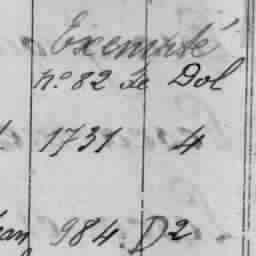 Exempté
no. 82 de Dol
1731 4
984. D2